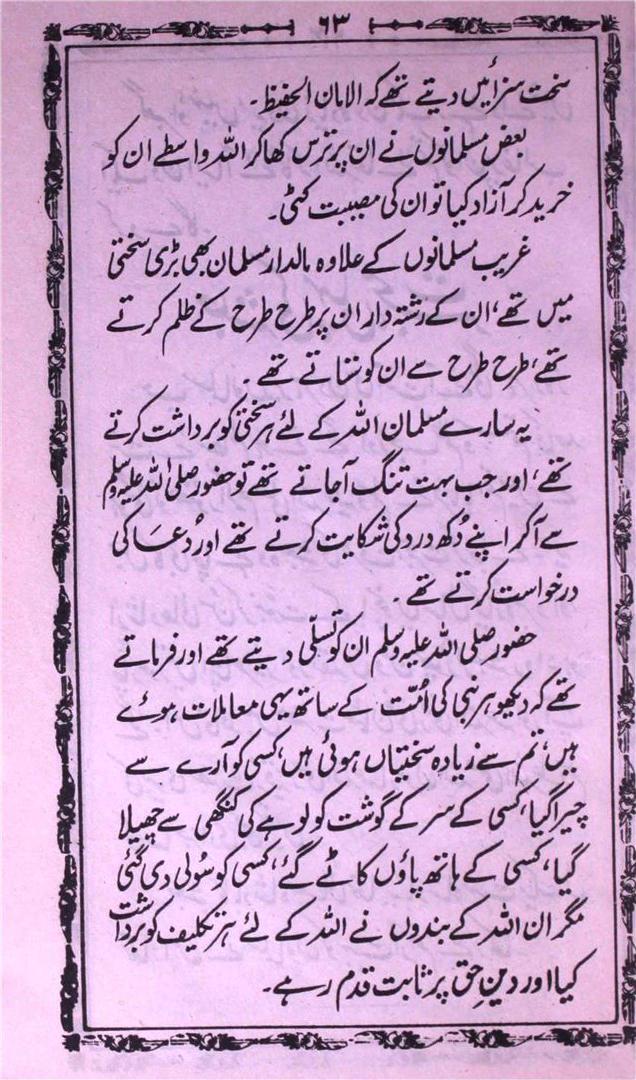 ۶۳
سخت سزائیں دیتے تھے کہ الامان الحفیظ۔
بعض مسلمانوں نے ان پر ترس کھا کر اللہ واسطے ان کو
خرید کر آزاد کیا تو ان کی مصیبت کٹی۔
غریب مسلمانوں کے علاوہ مالدار مسلمان بھی بڑی سختی
میں تھے، ان کے رشتہ دار ان پر طرح طرح کے ظلم کرتے
تھے، طرح طرح سے ان کو ستاتے تھے۔
یہ سارے مسلمان اللہ کے لئے ہر سختی کو برداشت کرتے
تھے، اور جب بہت تنگ آجاتے تھے تو حضور صلی اللہ علیہ وسلم
سے آکر اپنے دُکھ درد کی شکایت کرتے تھے اور دُعا کی
درخواست کرتے تھے۔
حضور صلی اللہ علیہ وسلم ان کو تسلّی دیتے تھے اور فرماتے
تھے کہ دیکھو ہر نبی کی اُمّت کے ساتھ یہی معاملات ہوئے
ہیں، تم سے زیادہ سختیاں ہوئی ہیں، کسی کو آرے سے
چیرا گیا، کسی کے سر کے گوشت کو لوہے کی کنگھی سے چھیلا
گیا، کسی کے ہاتھ پاؤں کاٹے گئے، کسی کو سُولی دی گئی
مگر ان اللہ کے بندوں نے اللہ کے لئے ہر تکلیف کو برداشت
کیا اور دینِ حق پر ثابت قدم رہے۔